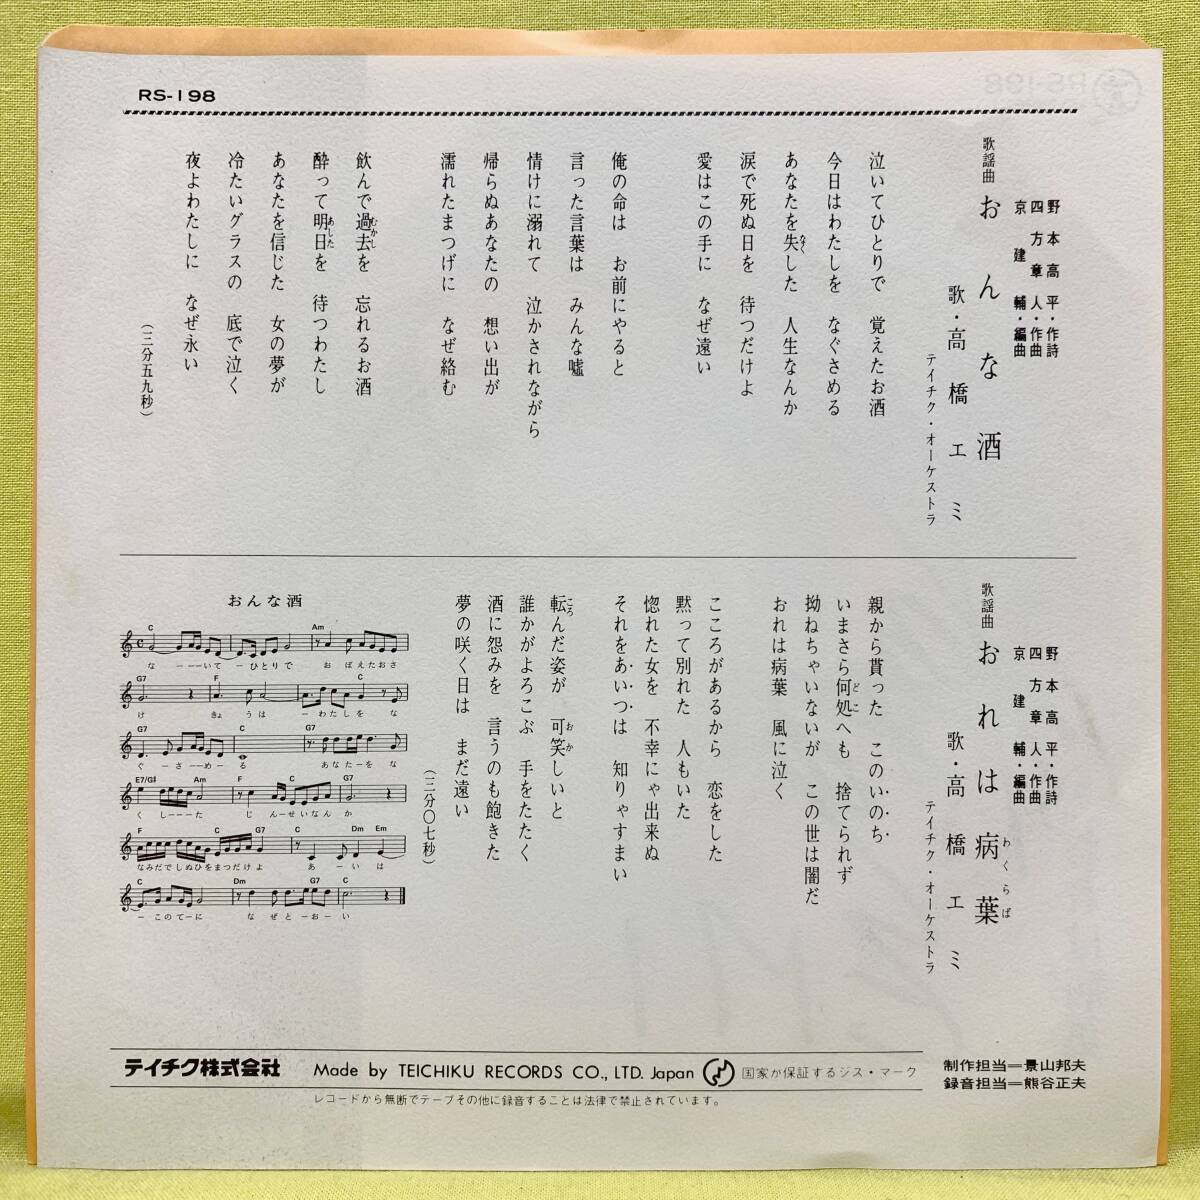 RS-198
野本高平・作詩
四方章人・作曲
京建輔・編曲
歌謡曲 おんな酒
歌・高橋エミ
テイチク・オーケストラ
泣いてひとりで 覚えたお酒
今日はわたしを なぐさめる
あなたを失した 人生なんか
なく
涙で死ぬ日を 待つだけよ
愛はこの手に なぜ遠い
俺の命は お前にやると
言った言葉は みんな嘘
情けに溺れて 泣かされながら
帰らぬあなたの 想い出が
濡れたまつげに なぜ絡む
飲んで過去を 忘れるお酒
むかし
酔って明日を 待つわたし
あした
あなたを信じた 女の夢が
冷たいグラスの 底で泣く
夜よわたしに なぜ永い
(三分五九秒)
野本高平・作詩
四方章人・作曲
京建輔・編曲
歌謡曲 おれは病葉
わくらば
歌・高橋エミ
テイチク・オーケストラ
親から貰った このいのち
いまさら何処へも 捨てられず
どこ
拗ねちゃいないが この世は闇だ
おれは病葉 風に泣く
こころがあるから 恋をした
黙って別れた 人もいた
惚れた女を 不幸にゃ出来ぬ
それをあいつは 知りゃすまい
転んだ姿が 可笑しいと
ころ
おか
誰かがよろこぶ 手をたたく
酒に怨みを 言うのも飽きた
夢の咲く日は まだ遠い
(三分〇七秒)
おんな酒
C Am
な−−−いて−ひとりで おぼえたおさ
G7 F C
け きょうは −わたしを な
G7 C G7
ぐ−さ−め−る あなた−をな
E7/G# Am F C G7
くし−−−た じん−せいなんか
F C G7 C Dm Em
なみだでしぬひをまつだけよ あ−いは
C Dm G7 C
−このて−に なぜと−お−い
テイチク株式会社 Made by TEICHIKU RECORDS CO., LTD. Japan 国家が保証するジス・マーク
レコードから無断でテープその他に録音することは法律で禁止されています。
制作担当=景山邦夫
録音担当=熊谷正夫